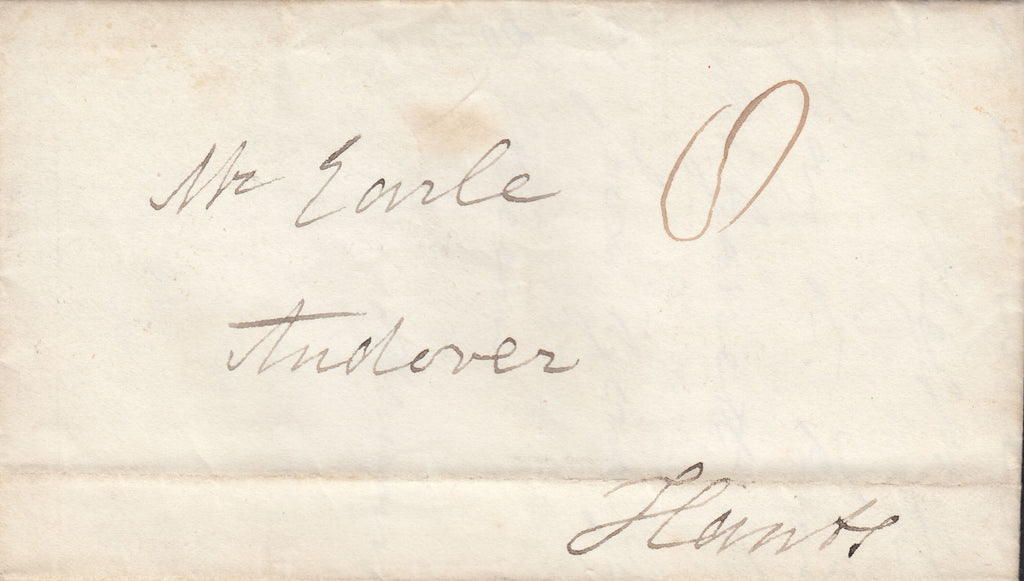 Mr Earle 8
Andover
Hants